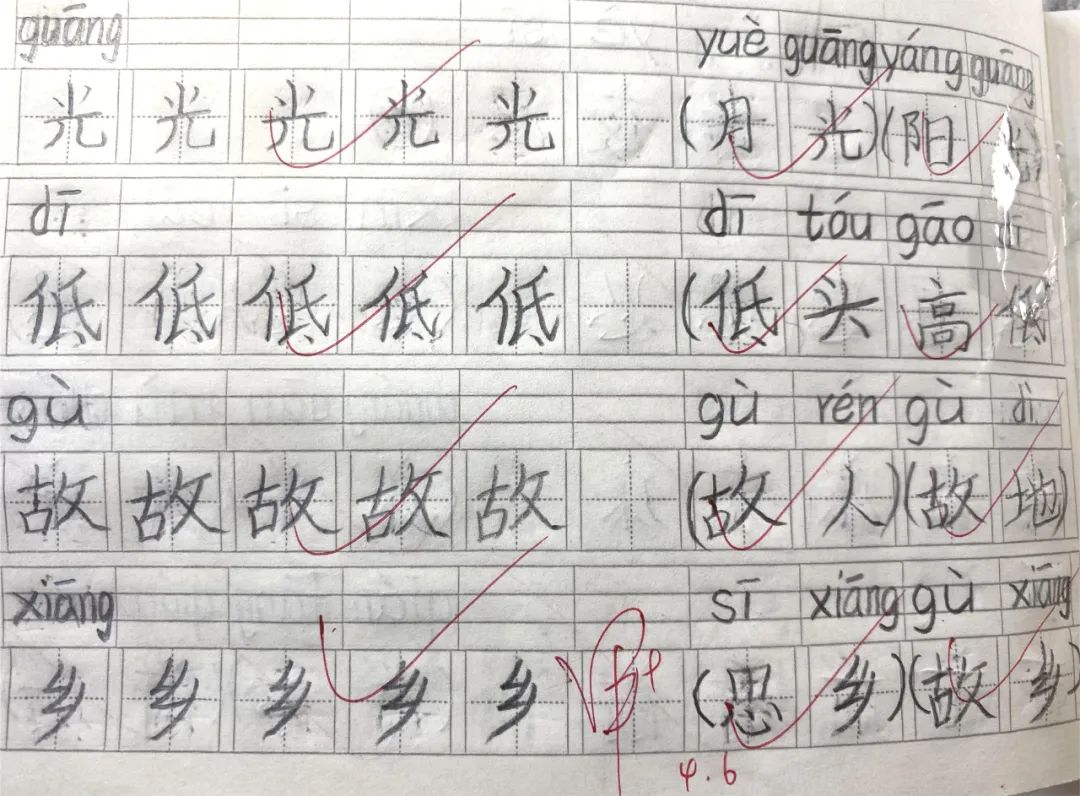 guāng yuè guāng yáng guāng
光 光 光 光 光 (月 光)(阳 光
dī dī tóu gāo
低 低 低 低 低 (低 头 高 低
gù gù rén gù dì
故 故 故 故 故 (故 人)(故 地)
xiāng sī xiāng gù xiāng
乡 乡 乡 乡 乡 (思 乡)(故 乡)
4.6